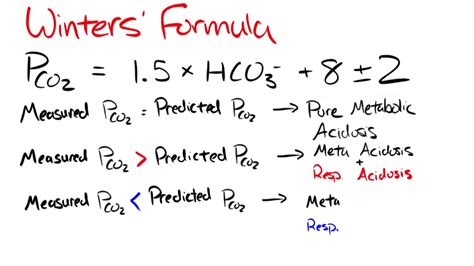 Winters' Formula
PCO2 = 1.5 × HCO3- + 8 ± 2
Measured PCO2 = Predicted PCO2 → Pure Metabolic
Acidosis
Measured PCO2 > Predicted PCO2 → Meta Acidosis
+
Resp. Acidosis
Measured PCO2 < Predicted PCO2 → Meta
Resp.